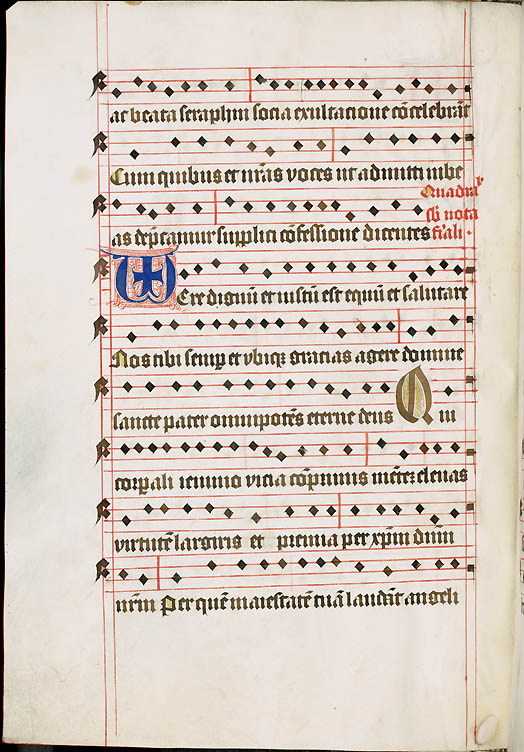 ac beata seraphin socia exultacione cōcelebrāt
Cum quibus et nr̄as voces vt admitti iube
Quadra
as dep̄camur supplici cōfessione dicentes
sb̄ nota
fr̄ali.
Vere dignū et iustū est equū et salutare
Nos tibi semp et vbiqꝫ gracias agere domine
sancte pater omnipotēs eterne deus Qui
corꝑali ieiunio vicia cōprimis mētē elevas
virtutē largiris et premia per xp̄m dn̄m
nr̄m Per quē maiestatē tuā laudāt angeli